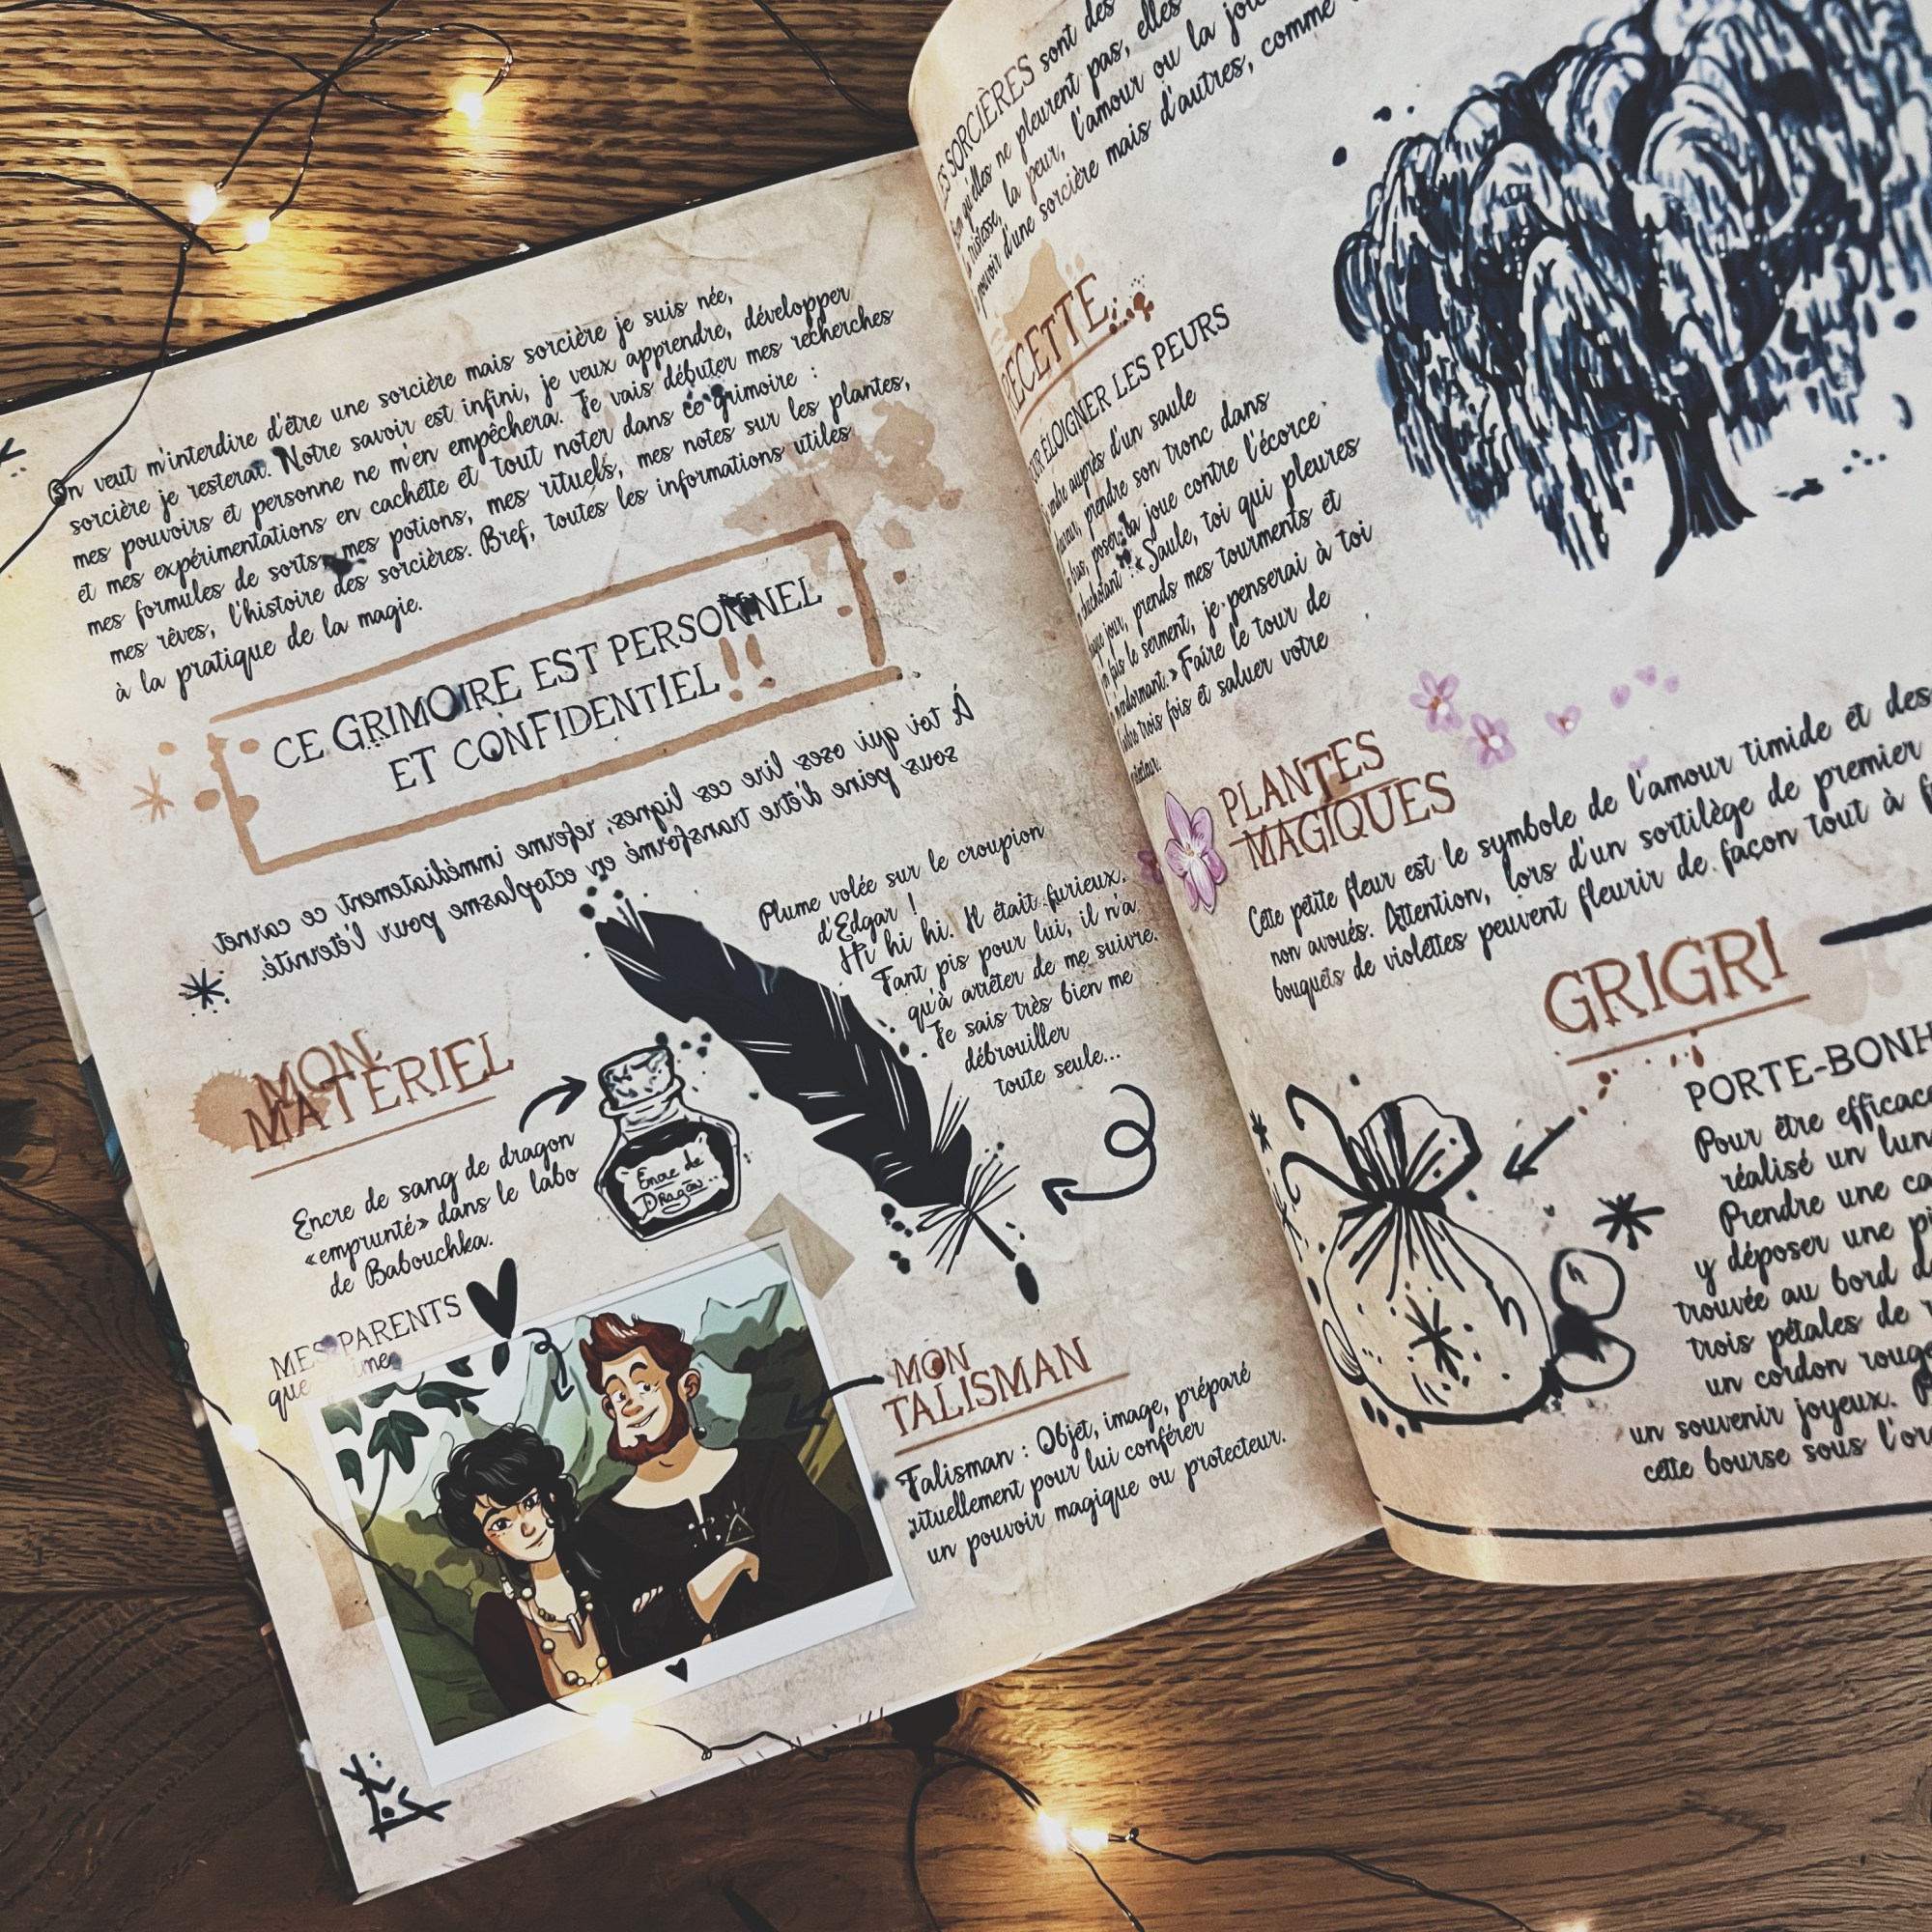 On veut m'interdire d'être une sorcière mais sorcière je suis née,
sorcière je resterai. Notre savoir est infini, je veux apprendre, développer
mes pouvoirs et personne ne m'en empêchera. Je vais débuter mes recherches
et mes expérimentations en cachette et tout noter dans ce grimoire :
mes formules de sorts, mes potions, mes rituels, mes notes sur les plantes,
mes rêves, l'histoire des sorcières. Bref, toutes les informations utiles
à la pratique de la magie.
CE GRIMOIRE EST PERSONNEL
ET CONFIDENTIEL !!
À toi qui oses lire ces lignes, referme immédiatement ce carnet
sous peine d'être transformé en ectoplasme pour l'éternité.
Plume volée sur le croupion
d'Edgar !
Hi hi hi. Il était furieux.
Tant pis pour lui, il n'a
qu'à arrêter de me suivre.
Je sais très bien me
débrouiller
toute seule...
MON
MATÉRIEL
Encre de sang de dragon
«emprunté» dans le labo
de Babouchka.
Encre de
Dragon..
MES PARENTS
que
MON
TALISMAN
Talisman : Objet, image, préparé
rituellement pour lui conférer
un pouvoir magique ou protecteur.
SORCIÈRES sont des
qu'elles ne pleurent pas, elles
tristesse, la peur, l'amour ou la
pouvoir d'une sorcière mais d'autres, comme
RECETTE
ÉLOIGNER LES PEURS
auprès d'un saule
pleureur, prendre son tronc dans
bras, poser la joue contre l'écorce
chuchotant : « Saule, toi qui pleures
jour, prends mes tourments et
fais le serment, je penserai à toi
m'endormant. » Faire le tour de
l'arbre trois fois et saluer votre
PLANTES
MAGIQUES
Cette petite fleur est le symbole de l'amour timide et des
non avoués. Attention, lors d'un sortilège de premier
bouquets de violettes peuvent fleurir de façon tout à
GRIGRI
PORTE-BONH
Pour être efficace
réalisé un lun
Prendre une
y déposer une
trouvée au bord
trois pétales de
un cordon rouge
un souvenir joyeux.
cette bourse sous